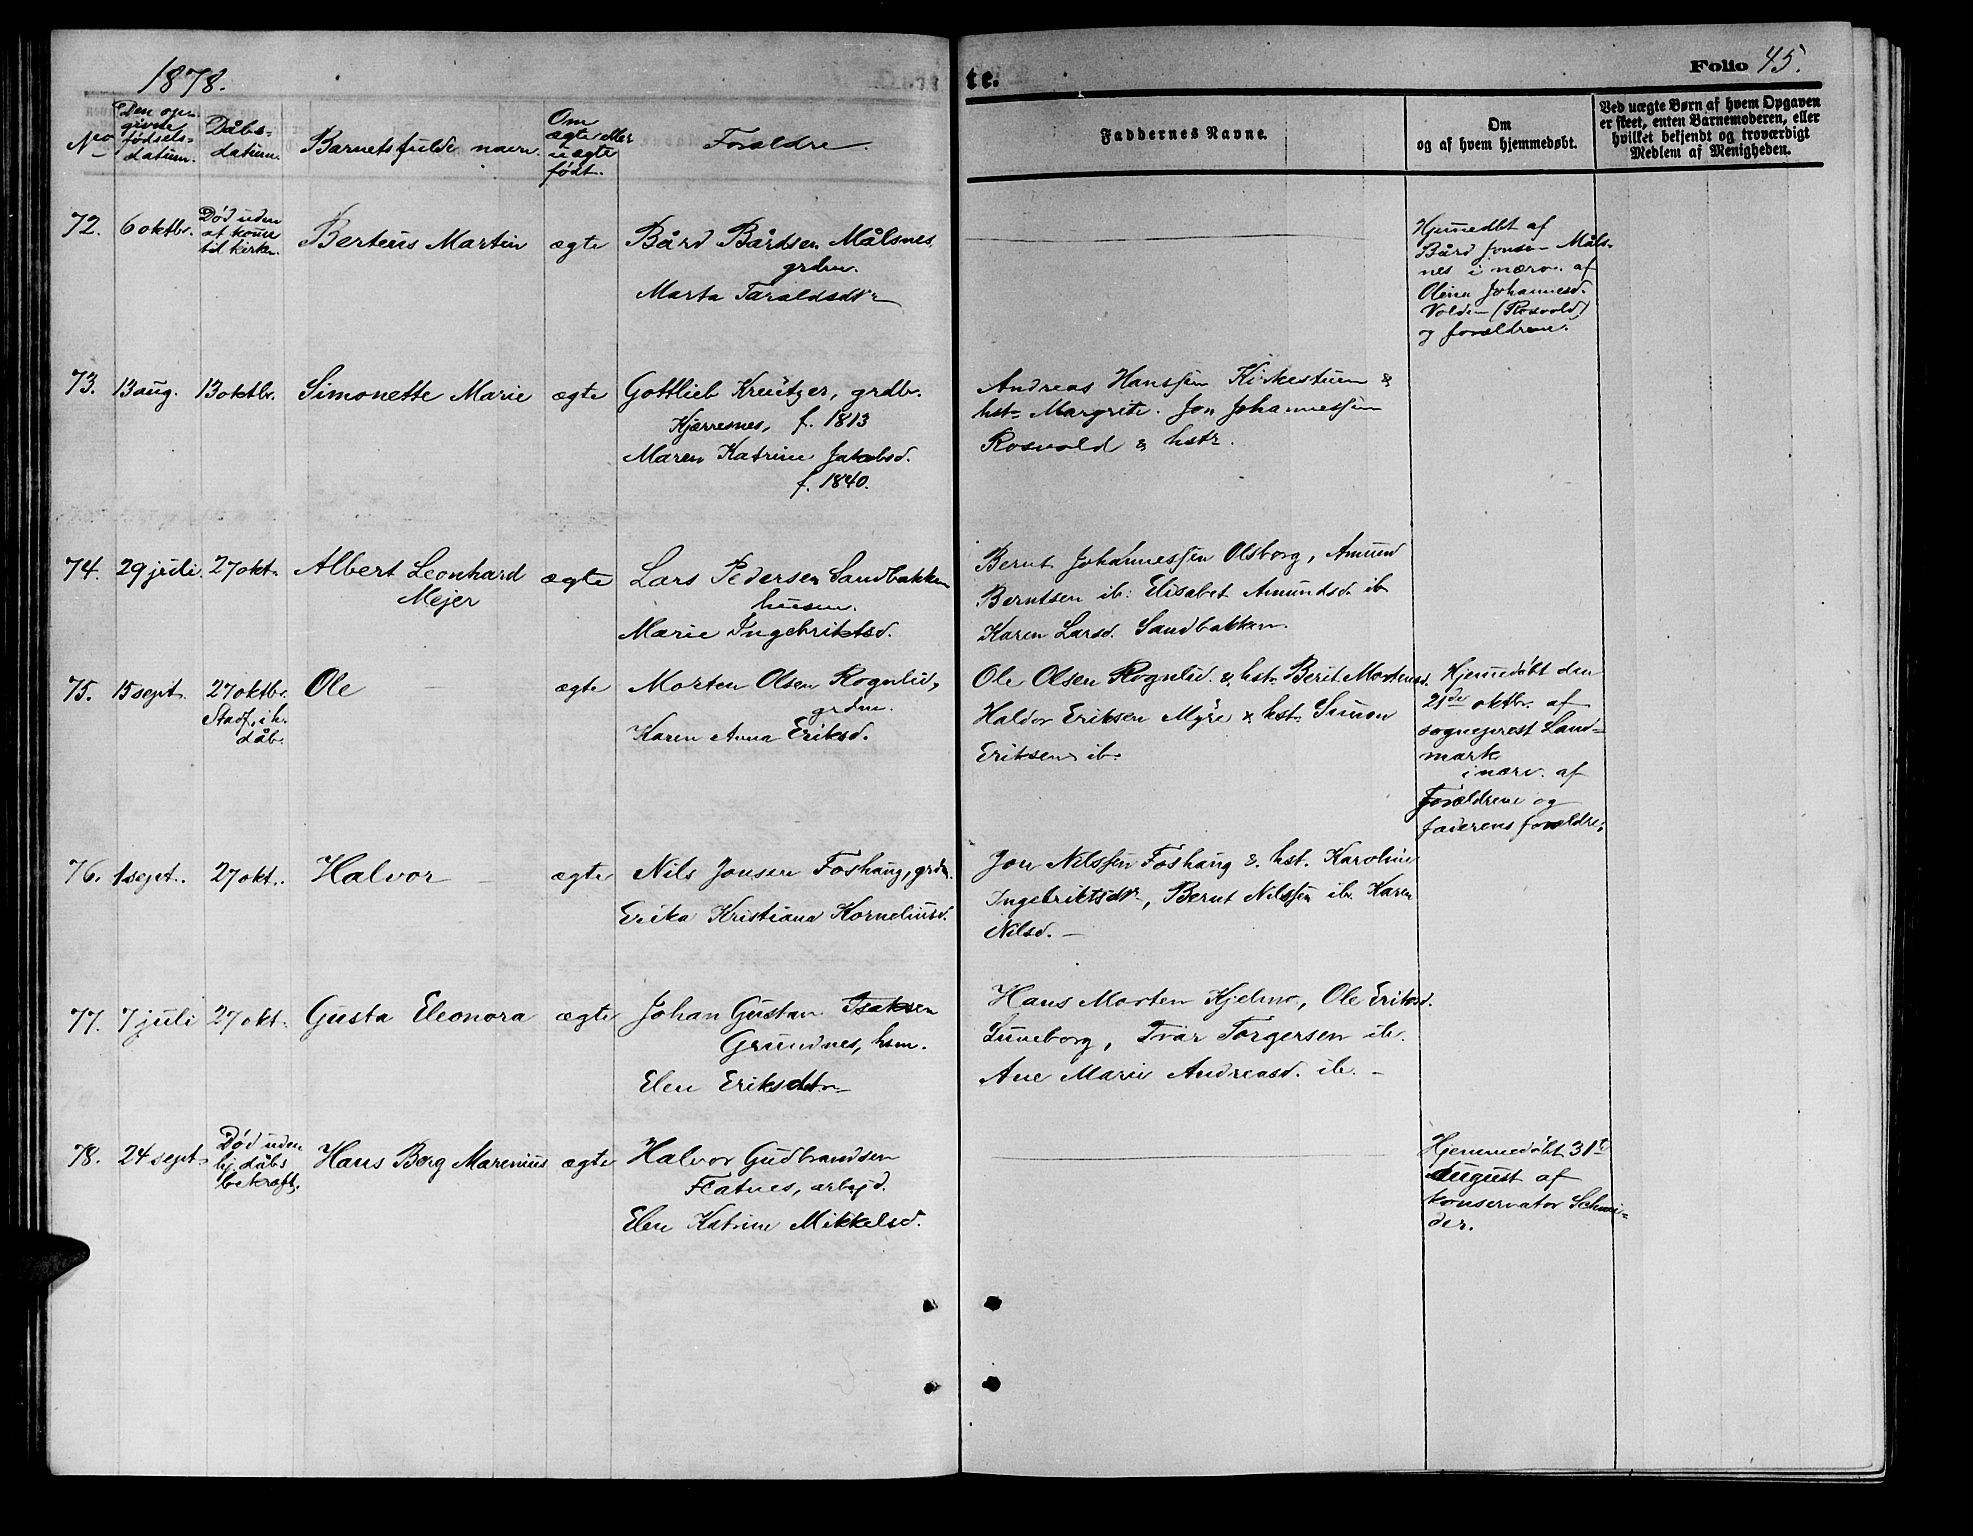 1878.
te.
Folio 45.
No
Den op-
givne
fødsels-
datum.
Dåbs-
datum.
Barnets fulde navn.
Om
ægte eller
uægte
født.
Forældre
Faddernes Navne.
Om
og af hvem hjemmedøbt.
Ved uægte Børn af hvem Opgaven
er skeet, enten Barnemoderen, eller
hvilket bekjendt og troværdigt
Medlem af Menigheden.
72. 6 oktbr. Død uden
at kome
til kirken.
Berteus Martin ægte Bård Bårdsen Målsnes
grdm.
Marta Taraldsdtr
Hjemedbt af
Bård Jonsen Måls-
nes i nærv. af
Olina Johannesd.
Volden (Rosvold)
og forældrene.
73. 13 aug. 13 oktbr. Simonette Marie ægte Gottlieb Kreutzer, grdbr.
Kjærresnes, f. 1813
Maren Katrine Jakobsd.
f. 1840.
Andreas Hanssen Kirkestuen &
hst. Margrite. Jon Johannessen
Rosvold & hstr.
74. 29 juli. 27 okt. Albert Leonhard
Mejer
ægte Lars Pedersen Sandbakken
husm.
Marie Ingebriktsd.
Bernt Johannessen Olsborg, Amund
Berntsen ib: Elisabet Amundsd. ib
Karen Larsd. Sandbakken.
75. 15 sept. 27 oktbr.
Stadf. i h.
dåb.
Ole ægte Morten Olsen Rognlid,
grdm.
Karen Anna Eriksd.
Ole Olsen Rognlid & hst. Berit Mortensd.
Haldor Eriksen Myre & hst. Simon
Eriksen ib.
Hjemedøbt den
21de oktbr. af
sogneprest Land-
mark
i nærv. af
Forældrene og
faderens forældre.
76. 1 sept. 27 okt. Halvor ægte Nils Jonsen Foshaug, grdm.
Erika Kristiana Korneliusd.
Jon Nilssen Foshaug & hst. Karoline
Ingebriktsdtr, Bernt Nilssen ib. Karen
Nilsd. –
77. 7 juli 27 okt. Gusta Eleonora ægte Johan Gustav Isaksen
Grundnes, hsm.
Elen Eriksdtr
Hans Morten Kjelmo, Ole Eriksd.
Luneborg, Ivar Torgersen ib.
Ane Marie Andreasd. ib. –
78. 24 sept. Død uden
hj. dåbs
bekræft.
Hans Berg Marenius ægte Halvor Gudbrandsen
Flatnes, arbejd.
Elen Katrine Mikkelsd.
Hjemmedøbt 31te
August af
konservator Schnei-
der.